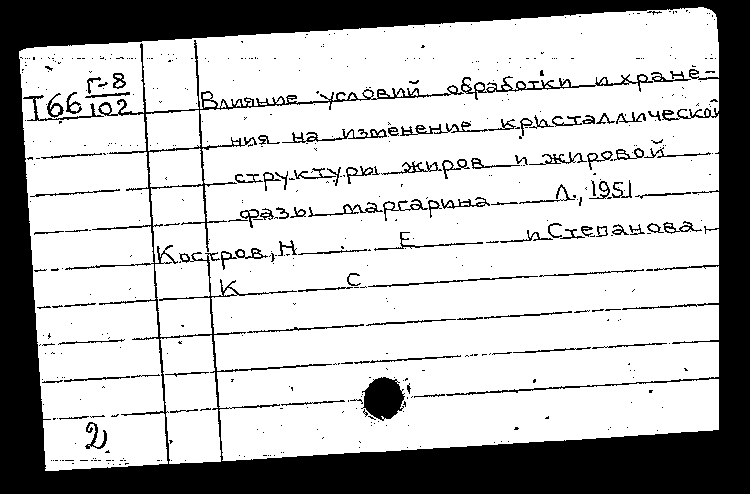 Г-8
Т66 102 Влияние условий обработки и хране-
ния на изменение кристаллической
структуры жиров и жировой
фазы маргарина Л., 1951.
Костров, Н. Е и Степанова,
К С
2